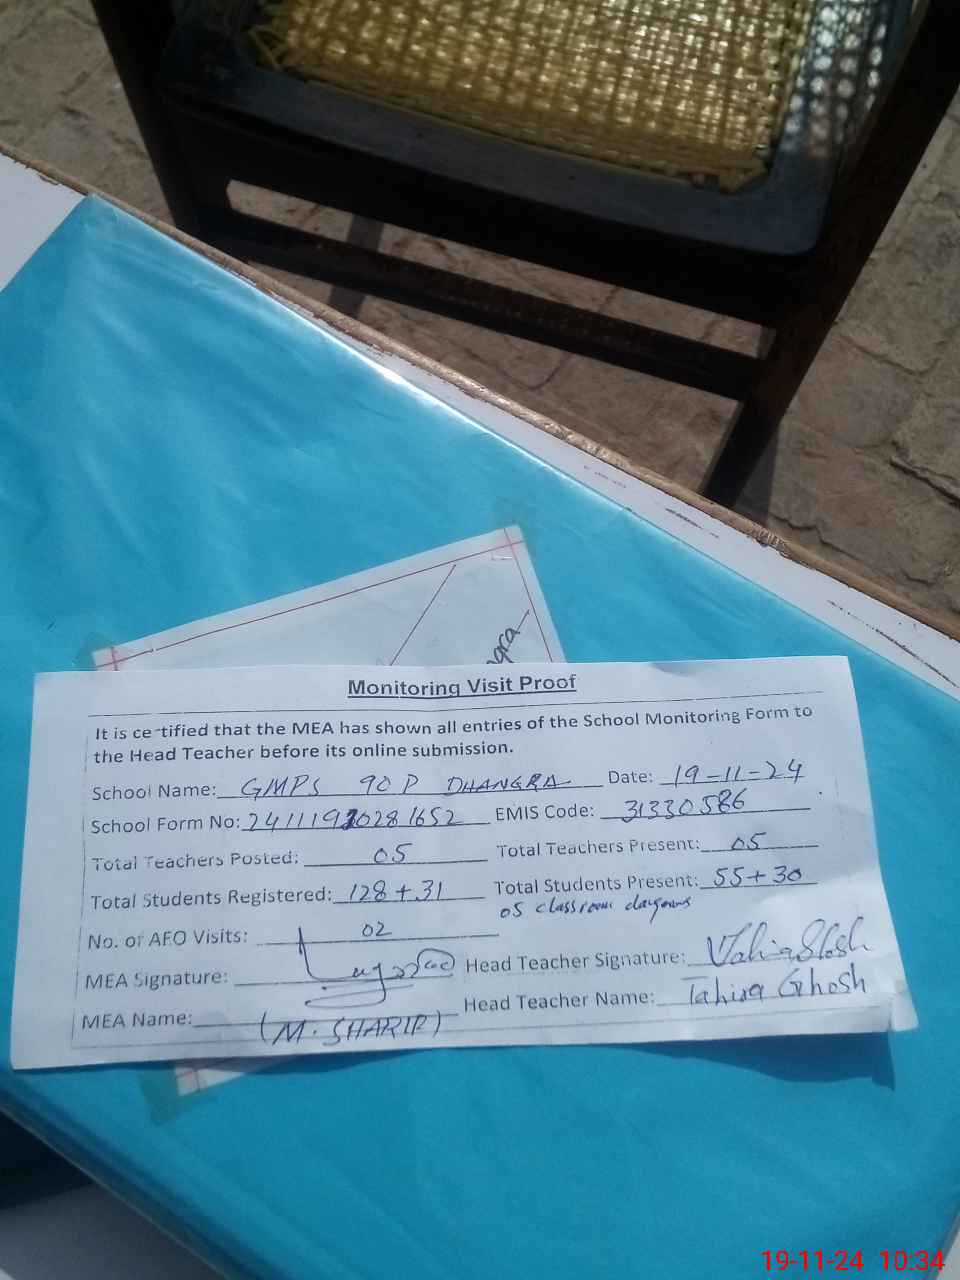 gra
Monitoring Visit Proof
It is certified that the MEA has shown all entries of the School Monitoring Form to
the Head Teacher before its online submission.
School Name: GMPS 90 P DHANGRA Date: 19-11-24
School Form No: 2411191028 1652 EMIS Code: 31330586
Total Teachers Posted: 05 Total Teachers Present: 05
Total Students Registered: 128+31 Total Students Present: 55+30
05 classroom
No. of AEO Visits: 02
MEA Signature: Head Teacher Signature:
MEA Name: (M. SHARIF) Head Teacher Name: Tahira Ghosh
19-11-24 10:34